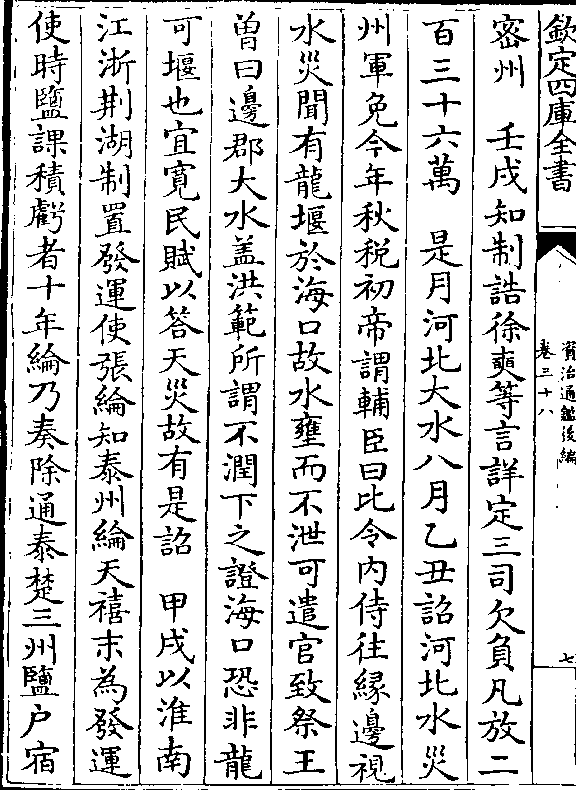 欽定四庫全書
資治通鑑後編
卷三十八
七
密州　壬戌知制誥徐奭等言詳定三司欠負凡放二
百三十六萬　是月河北大水八月乙丑詔河北水災
州軍免今年秋税初帝謂輔臣曰比令内侍往緣邊視
水災聞有龍堰於海口故水壅而不泄可遣官致祭王
曽曰邊郡大水盖洪範所謂不潤下之證海口恐非龍
可堰也宜寛民賦以答天災故有是詔　甲戌以淮南
江浙荆湖制置發運使張綸知泰州綸天禧末為發運
使時鹽課積虧者十年綸乃奏除通泰楚三州鹽户宿